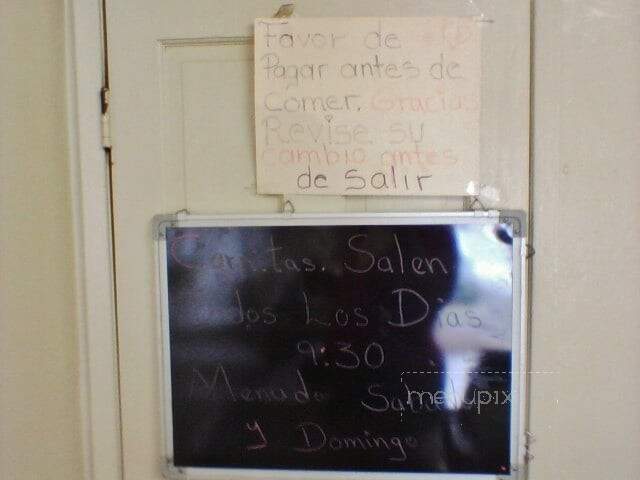 Favor de
Pagar antes de
comer. Gracias
Revise su
cambio antes
de salir
Carnitas. Salen
todos Los Dias
9:30
Menudo Sabado
y Domingo